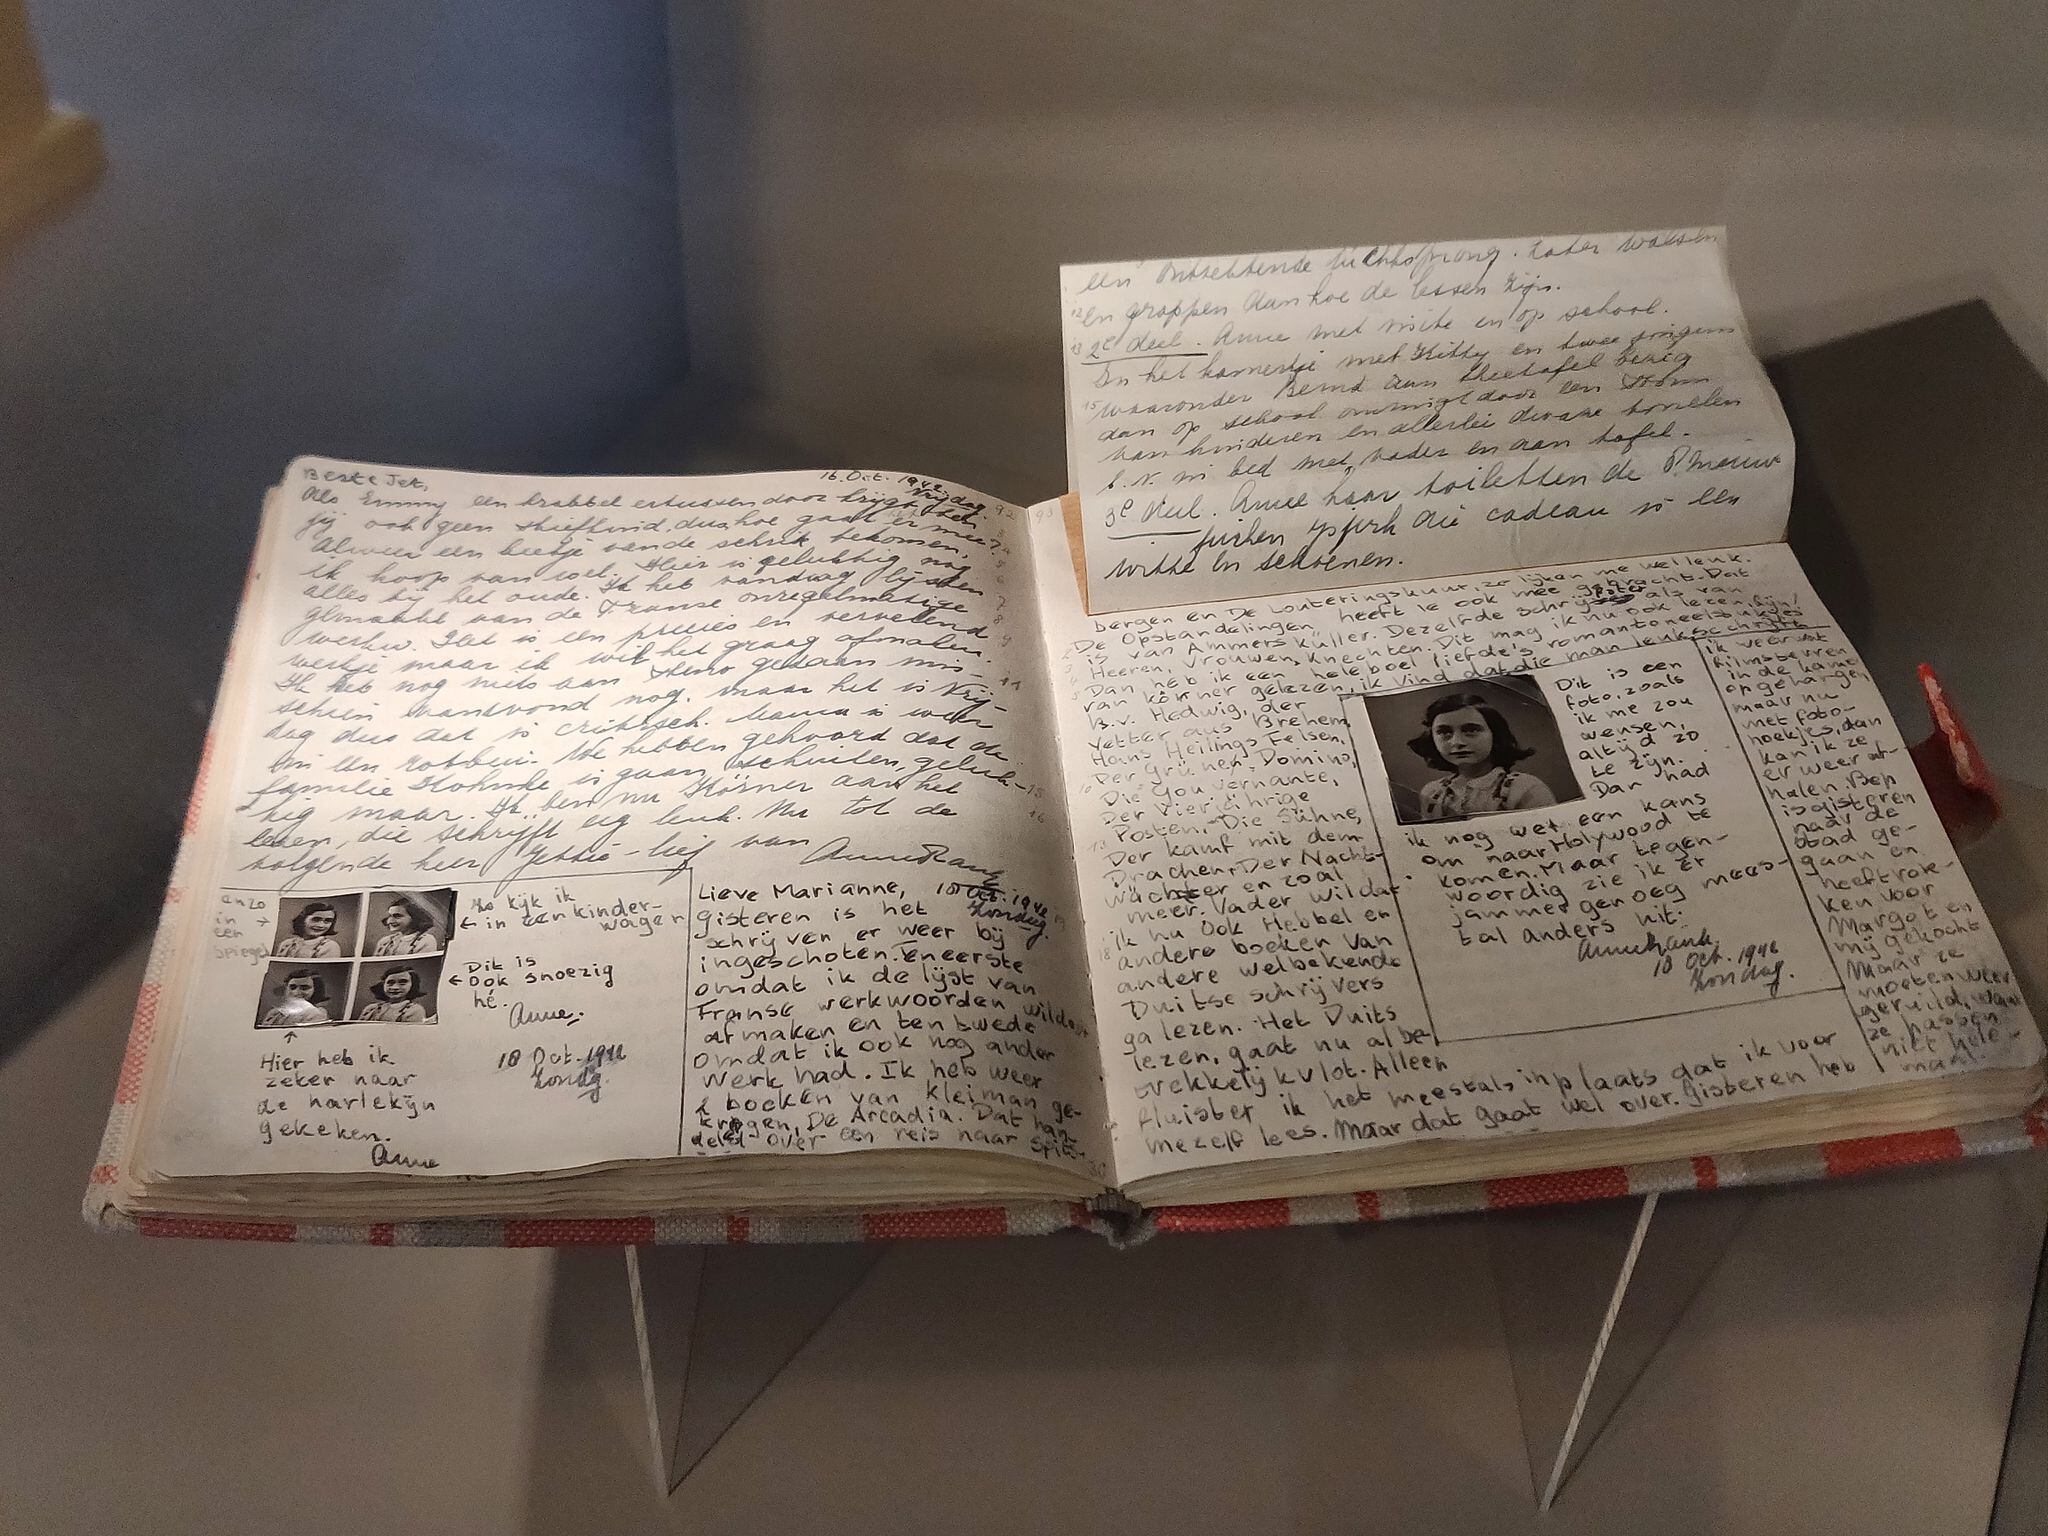 Beste Jet, 16. Oct. 1942. Vrijdag
Als Emmy een krabbel ertussen door krijgt ben
jij ook geen stiefkind, dus hoe gaat er mee?
Alweer een beetje van de schrik bekomen,
ik hoop van wel. Hier is gelukkig nog
alles bij het oude. Ik heb vandaag lijsten
gemaakt van de Franse onregelmatige
werkw. Het is een precies en vervelend
werkje maar ik wil het graag afmaken.
Ik heb nog niets aan Steno gedaan mis-
schien vanavond nog, maar het is Vrij-
dag dus dat is critisch. Mama is weer
in een rotbui. We hebben gehoord dat de
familie is gaan schuilen, geluk-
kig maar. Ik ben nu Körner aan het
lezen, die schrijft erg leuk. Nu tot de
volgende keer Jettie-lief van
Anne Frank
anzo
in →
een
spiegel
zo kijk ik
← in een kinder-
wagen
← Dit is
ook snoezig
hé.
Anne.
↑
Hier heb ik
zeker naar
de harlekijn
gekeken.
Anne
18 Oct. 1942
Zondag.
Lieve Marianne, 18 Oct. 1942
Zondag.
gisteren is het
schrijven er weer bij
ingeschoten. Eneerste
omdat ik de lijst van
Franse werkwoorden wilde
afmaken en ten twede
omdat ik ook nog ander
werk had. Ik heb weer
2 boeken van Kleiman ge-
kregen, De Arcadia. Dat han-
delt over een reis naar Spits-
een ontzettende luchtsprong. Later walsen
en grappen aan hoe de lessen zijn.
2e deel. Anne met visite en op school.
In het kamertje met Kitty en twee jongens
waaronder Bernd aan theetafel bezig
dan op school omringt door een stroom
van kinderen en allerlei dwaze tonelen
b.v. in bed met vader en aan tafel.
3e deel. Anne haar toiletten de nieuwe
die cadeau is een
witte en schoenen.
bergen en De Louteringskuur, ze lijken me wel leuk.
De Opstandelingen heeft ie ook mee gebracht. Dat
is van Ammers küller. Dezelfde schrijfster als van
Heeren, Vrouwen, Knechten. Dit mag ik nu ook lezen, fijn!
Dan heb ik een heleboel liefde's romantoneelstukjes
van Körner gelezen, ik vind dat die man leuk schrijft
B.v. Hedwig, der
Vetter aus Brehem,
Hans Heilings Felsen,
Der Grünen Domino,
Die Gouvernante,
Der Vierjährige
Posten, Die Sühne,
Der Kampf mit dem
Drachen, Der Nacht-
wächter en zoal
meer. Vader wil dat
ik nu ook Hebbel en
andere boeken van
andere welbekende
Duitse schrijvers
ga lezen. Het Duits
lezen, gaat nu al be-
trekkelijk vlot. Alleen
fluister ik het meestal inplaats dat ik voor
mezelf lees. Maar dat gaat wel over. Gisteren heb
Dit is een
foto, zoals
ik me zou
wensen,
altijd zo
te zijn.
Dan had
ik nog wel een kans
om naar Holywood te
komen. Maar tegen-
woordig zie ik er
jammer genoeg mees-
tal anders uit.
Annefrank.
18 Oct. 1942
Zondag.
ik weer wat
filmsterren
in de kamer
opgehangen
maar nu
met foto-
hoekjes, dan
kan ik ze
er weer af-
halen. Bep
is gisteren
naar de
stad ge-
gaan en
heeft rok-
ken voor
Margot en
mij gekocht
Maar ze
moeten weer
geruild, want
ze passen
niet hele-
maal.